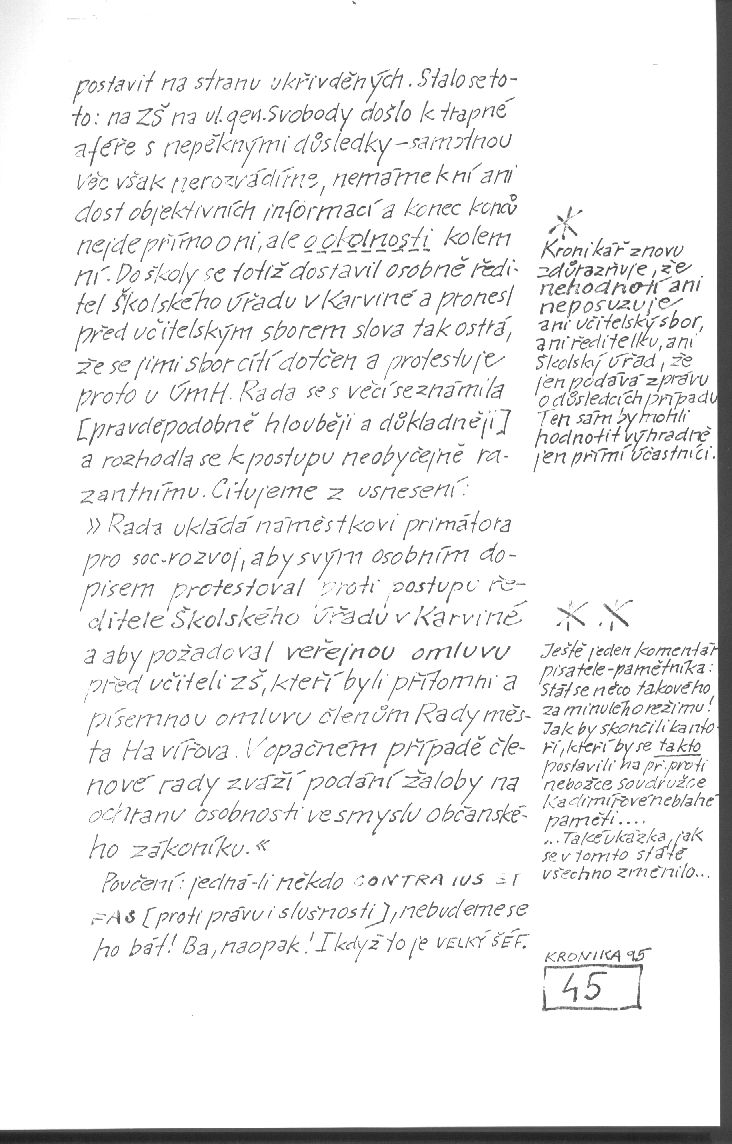 postavit na stranu ukřivděných. Stalo se to-
to: na ZŠ na ul. gen. Svobody došlo k trapné
aféře s nepěknými důsledky – samotnou
věc však nerozvádíme, nemáme k ní ani
dost objektivních informací a konec konců
nejde přímo o ni, ale o okolnosti kolem
ní. Do školy se totiž dostavil osobně ředi-
tel Školského úřadu v Karviné a pronesl
před učitelským sborem slova tak ostrá,
že se jimi sbor cítí dotčen a protestuje
proto u ÚmH. Rada se s věcí seznámila
[pravděpodobně hlouběji a důkladněji]
a rozhodla se k postupu neobyčejně ra-
zantnímu. Citujeme z usnesení:
» Rada ukládá náměstkovi primátora
pro soc. rozvoj, aby svým osobním do-
pisem protestoval proti postupu ře-
ditele Školského úřadu v Karviné
a aby požadoval veřejnou omluvu
před učiteli ZŠ, kteří byli přítomni a
písemnou omluvu členům Rady měs-
ta Havířova. V opačném případě čle-
nové rady zváží podání žaloby na
ochranu osobnosti ve smyslu občanské-
ho zákoníku. «
Poučení: jedná-li někdo CONTRA IUS ET
FAS [proti právu i slušnosti], nebudeme se
ho bát! Ba, naopak! I když to je VELKÝ ŠÉF.
*
Kronikář znovu
zdůrazňuje, že
nehodnotí ani
neposuzuje
ani učitelský sbor,
ani ředitelku, ani
Školský úřad, že
jen podává zprávu
o důsledcích případu
Ten sám by mohli
hodnotit výhradně
jen přímí účastníci.
* *
Ještě jeden komentář
pisatele-pamětníka:
Stát se něco takového
za minulého režimu!
Jak by skončili kanto-
ři, kteří by se takto
postavili na př. proti
nebožce soudružce
Kadimířové neblahé
paměti....
...Také ukázka, jak
se v tomto státě
všechno změnilo...
KRONIKA 95
45